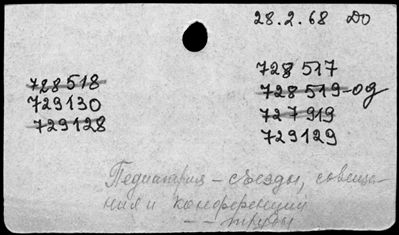 28.2.68 До
728518
729130
729128
728517
728519-од
727919
729129
Педиатрия - съезды, совеща-
ния и конференции
- - труды